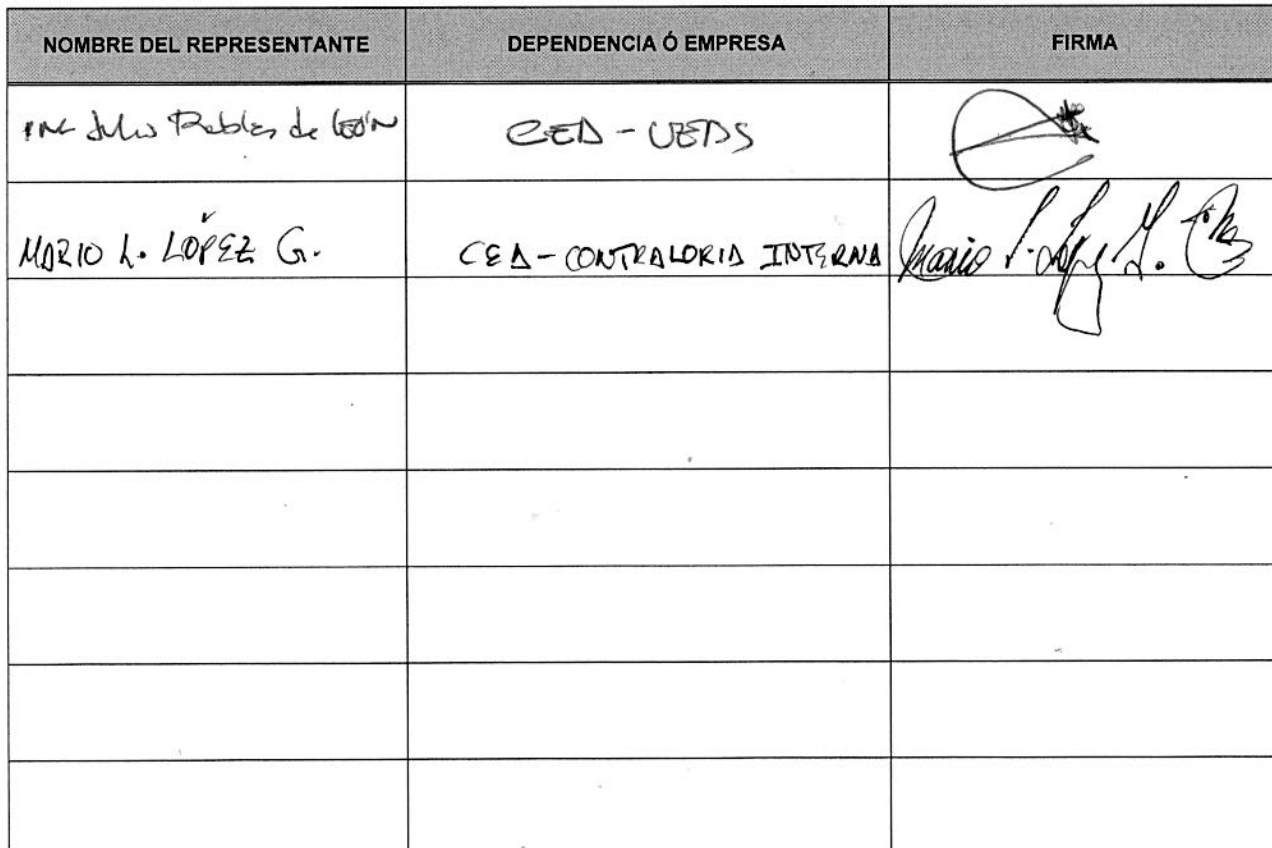 NOMBRE DEL REPRESENTANTE DEPENDENCIA Ó EMPRESA FIRMA
Ing Julio Robles de León CEA - UEDS
MARIO L. LÓPEZ G. CEA - CONTRALORIA INTERNA Mario L. López G.